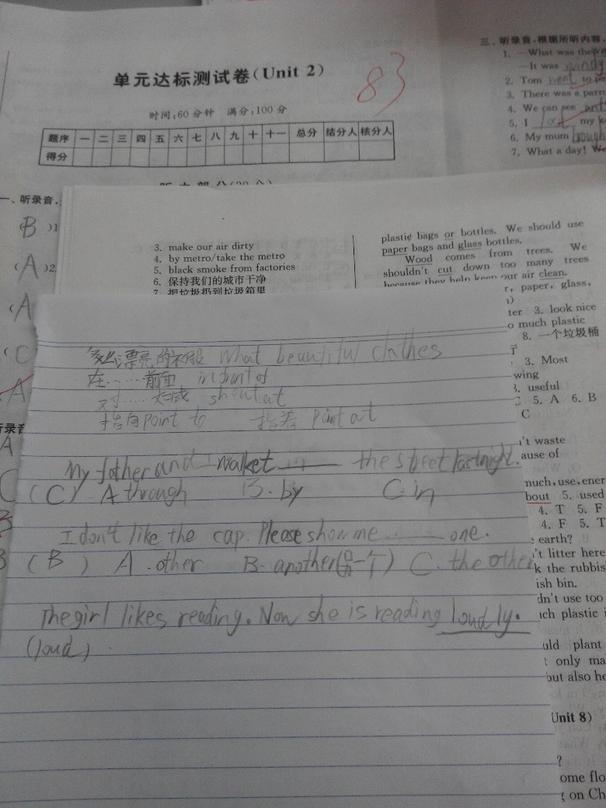 单元达标测试卷(Unit 2)
83
时间:60分钟 满分:100分
题序 一 二 三 四 五 六 七 八 九 十 十一 总分 结分人 核分人
得分
三、听录音,根据所听内容,
1. —What was the
—It was windy
2. Tom went to
3. There was a
4. We can see
5. I lost my
6. My mum
7. What a day!
一、听录音,
(B)1
(A)2
(A
(C
A
3. make our air dirty
4. by metro/take the metro
5. black smoke from factories
6. 保持我们的城市干净
7. 把垃圾扔到垃圾箱里
plastic bags or bottles. We should use
paper bags and glass bottles.
Wood comes from trees. We
shouldn't cut down too many trees
because they help keep our air clean.
r, paper, glass,
ter 3. look nice
o much plastic
8. 一个垃圾桶
3. Most
wing
useful
C 5. A 6. B
C
漂亮的衣服 What beautiful clothes
在……前面 in front of
对……大喊 shout at
指向 point to 指着 point at
My father and I walked in ___ the street last night.
(C) A through B. by C in
I don't like the cap. Please show me ___ one.
(B) A. other B. another(另一个) C. the other
The girl likes reading. Now she is reading loudly.
(loud)
n't waste
ause of
much, use, ener
bout 5. used
4. T 5. F
4. F 5. T
e earth?
n't litter here
k the rubbis
ish bin.
dn't use too
uch plastic
uld plant
t only ma
but also he
Unit 8)
?
ome flo
t on Ch